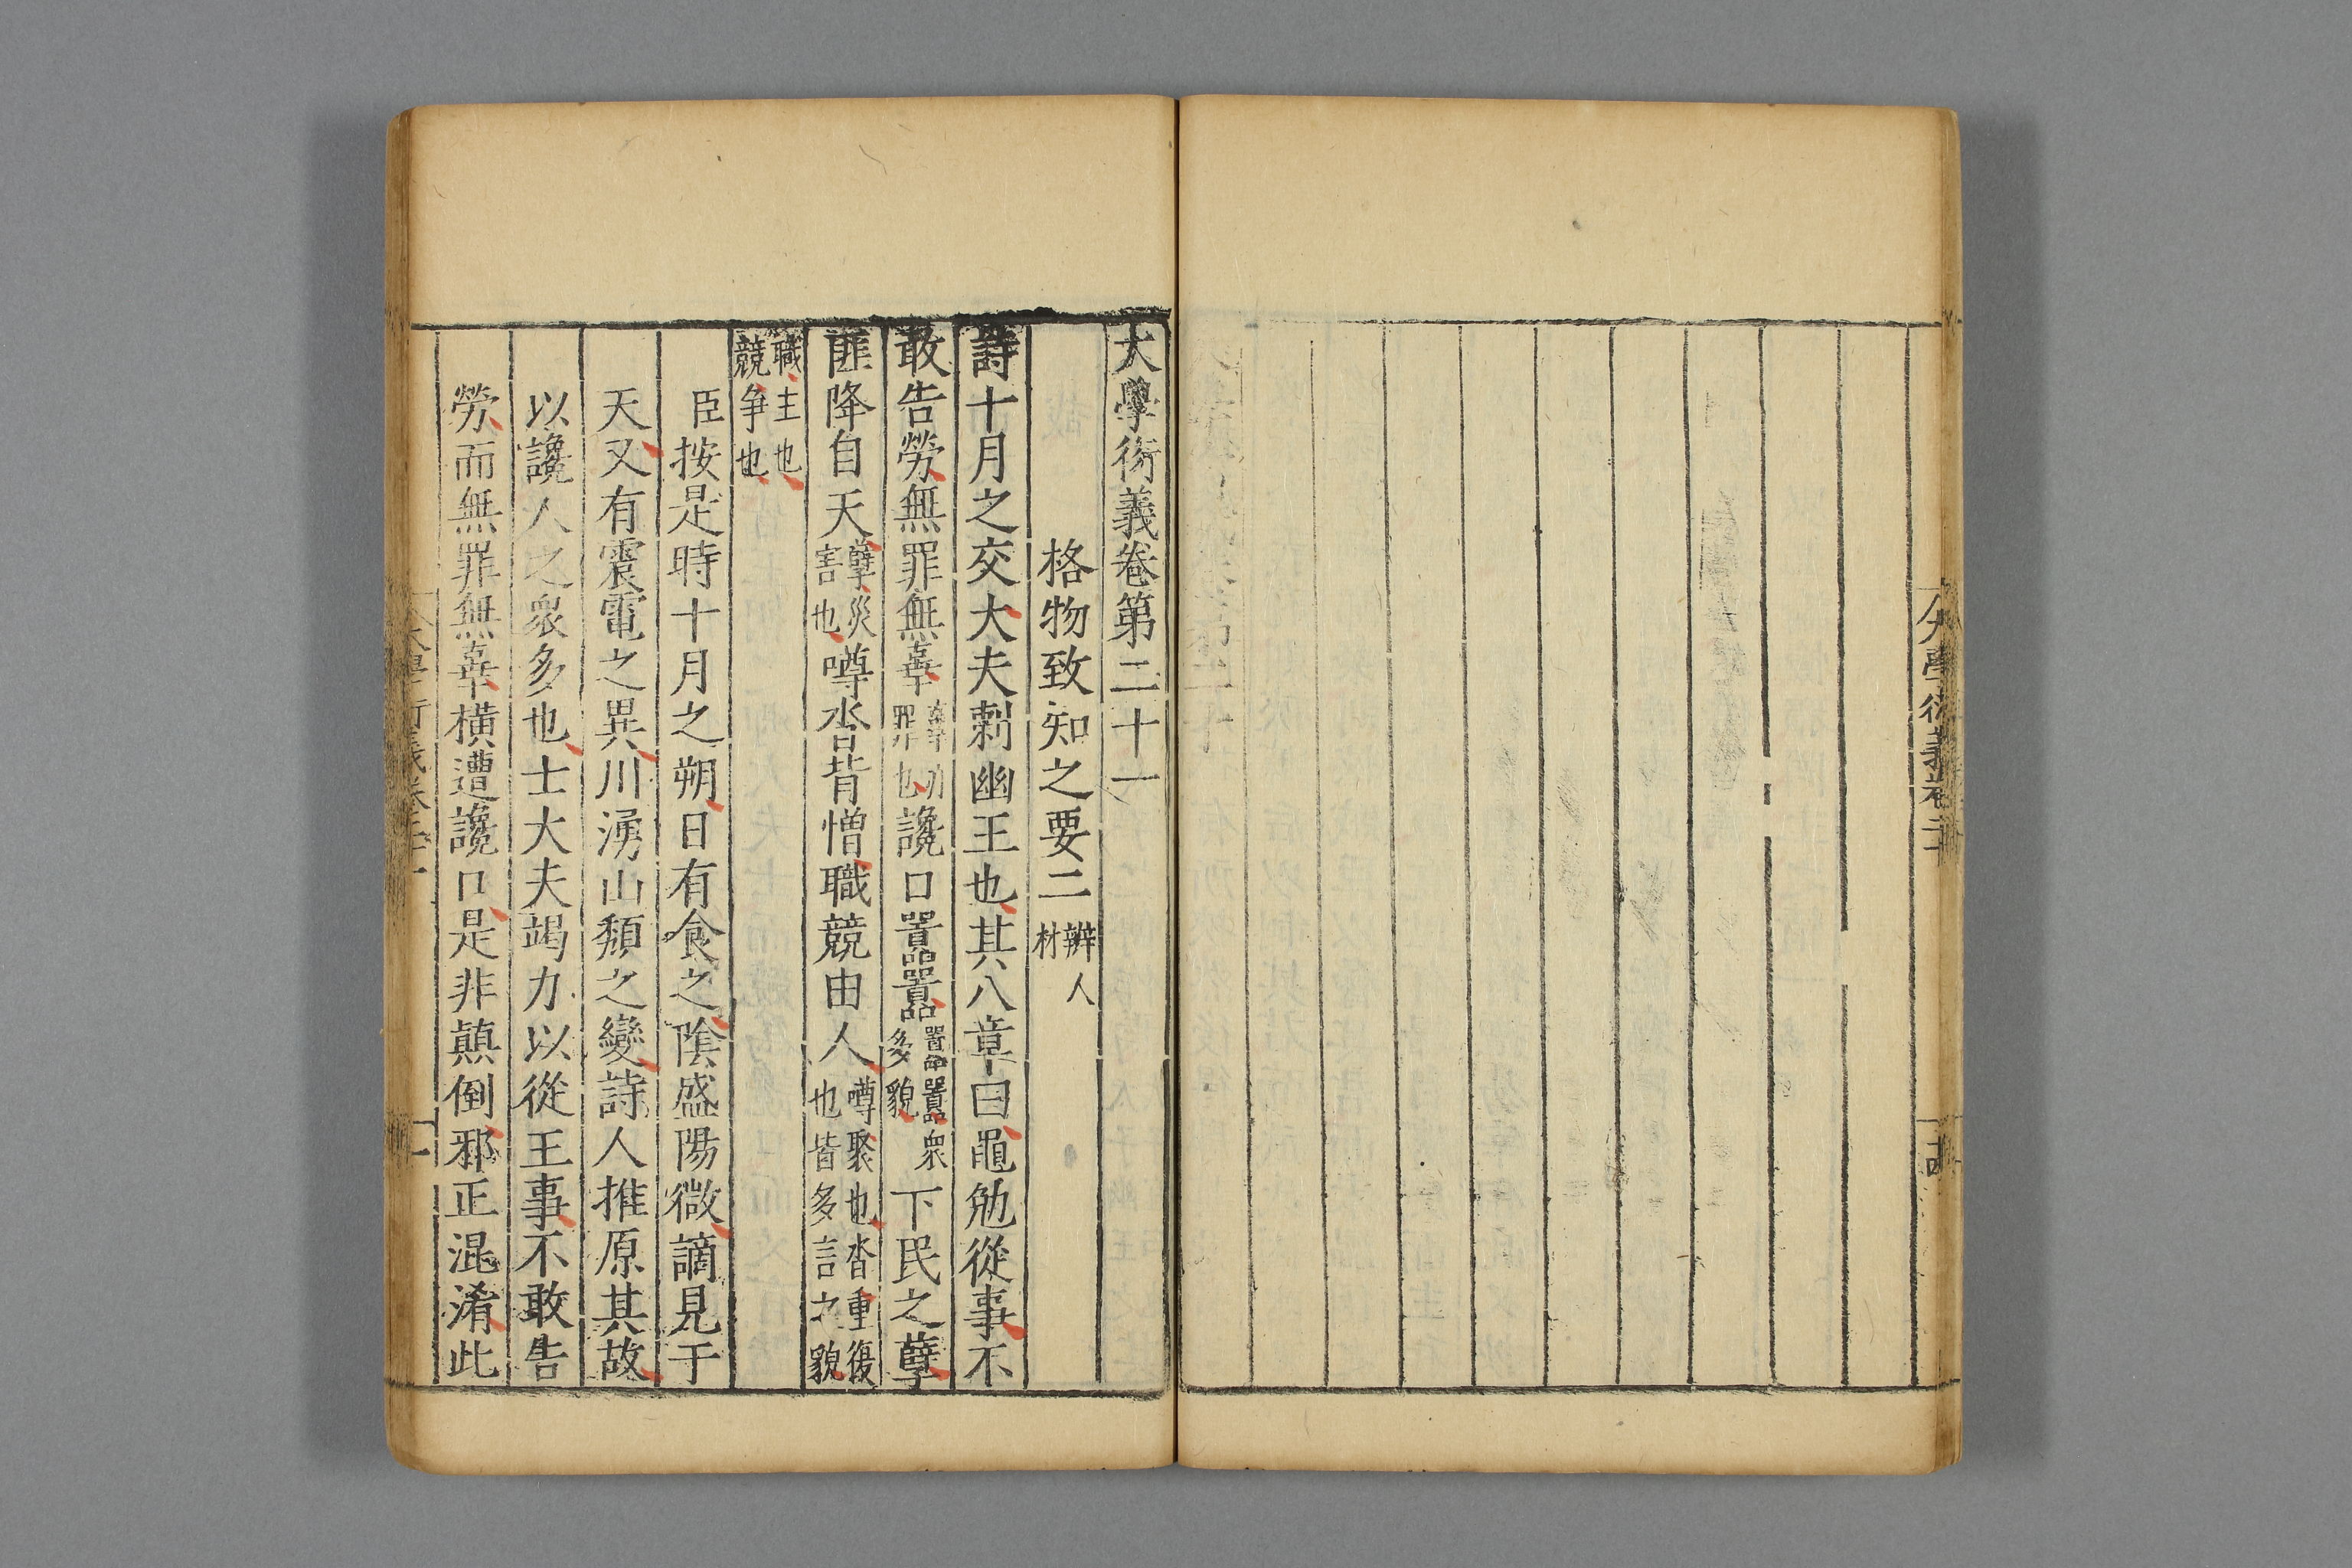 大學衍義卷二十
十四
大學衍義卷第二十一
格物致知之要二辨人材
詩十月之交大夫刺幽王也其八章曰黽勉從事不
敢告勞無罪無辜辜亦罪也讒口囂囂囂囂衆多貌下民之孽
匪降自天孽災害也噂沓背憎職競由人噂聚也沓重復也皆多言之貌
職主也競争也
臣按是時十月之朔日有食之陰盛陽微謫見于
天又有震電之異川湧山頽之變詩人推原其故
以讒人之衆多也士大夫竭力以從王事不敢告
勞而無罪無辜横遭讒口是非顛倒邪正混淆此
大學衍義卷二十一
一